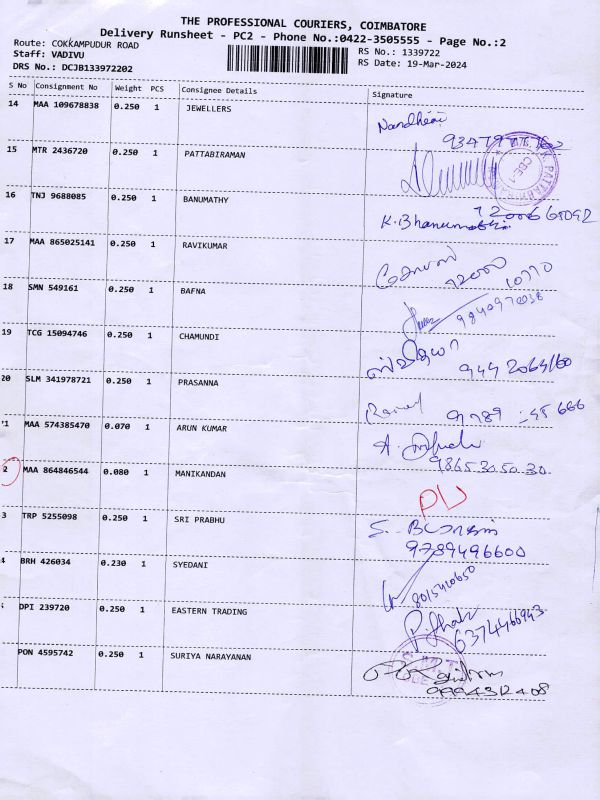 THE PROFESSIONAL COURIERS, COIMBATORE
Delivery Runsheet - PC2 - Phone No.:0422-3505555 - Page No.:2
Route: COKKAMPUDUR ROAD
Staff: VADIVU
RS No.: 1339722
DRS No.: DCJB133972202
RS Date: 19-Mar-2024
S No Consignment No Weight PCS Consignee Details Signature
14 MAA 109678838 0.250 1 JEWELLERS
15 MTR 2436720 0.250 1 PATTABIRAMAN
16 TNJ 9688085 0.250 1 BANUMATHY
K. Bhanumathi
17 MAA 865025141 0.250 1 RAVIKUMAR
72000 10770
18 SMN 549161 0.250 1 BAFNA
9840970038
19 TCG 15094746 0.250 1 CHAMUNDI
944 2064160
20 SLM 341978721 0.250 1 PRASANNA
21 MAA 574385470 0.070 1 ARUN KUMAR
9865 30 50 30
2 MAA 864846544 0.080 1 MANIKANDAN
3 TRP 5255098 0.250 1 SRI PRABHU
9789496600
4 BRH 426034 0.230 1 SYEDANI
8015410650
DPI 239720 0.250 1 EASTERN TRADING
6374460943
PON 4595742 0.250 1 SURIYA NARAYANAN